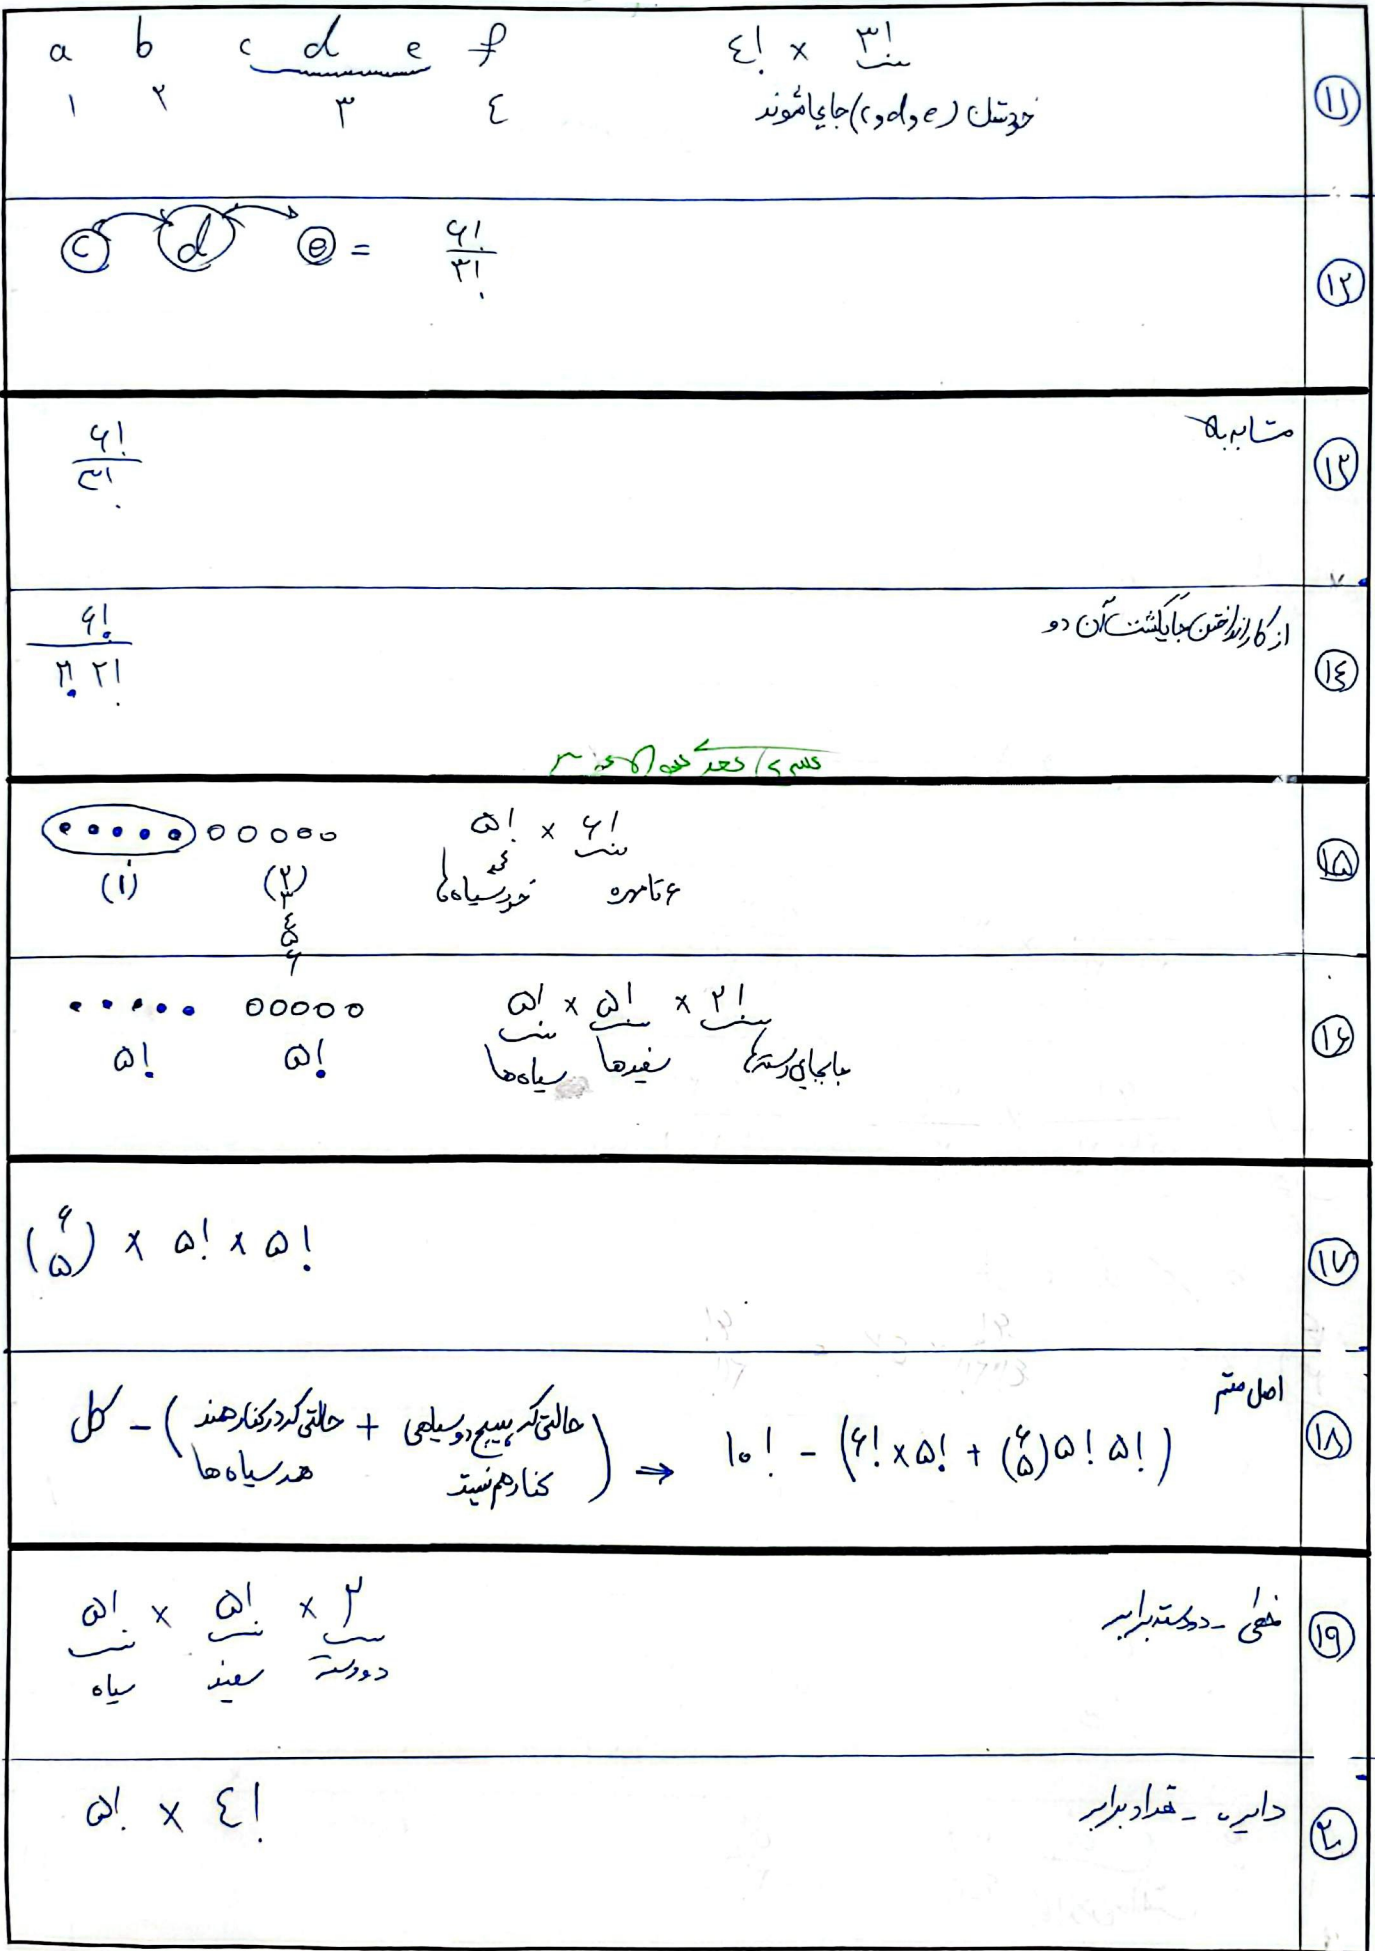 ۱۱
a b c d e f ٤! × ۳!
۱ ۲ ۳ ٤ خودشان (c و d و e) جابجا شوند
۱۲
c d e = ۶! / ۳!
۱۳
مشابه بالا
۶! / ۳!
۱٤
از کار انداختن جایگشت آن دو
۶! / ۲! ۲!
۱۵
۵! × ۶!
(۱) (۲) خود سیاه‌ها ۶ تا مهره
۳
٤
۵
۶
۱۶
۵! × ۵! × ۲!
۵! ۵! سیاه‌ها سفیدها جابجایی دسته‌ها
۱۷
(۶ ۵) × ۵! × ۵!
۱۸
اصل متمم
کل − (حالتی که در کنار همند + حالتی که هیچ دو سیاهی) ⇒ ۱۰! − (۶! × ۵! + (۶ ۵) ۵! ۵!)
سیاه‌ها کنار هم نیستند
۱۹
خطی - دو دسته برابر
۵! × ۵! × ۲
سیاه سفید دو دسته
۲۰
دایره - تعداد برابر
۵! × ٤!